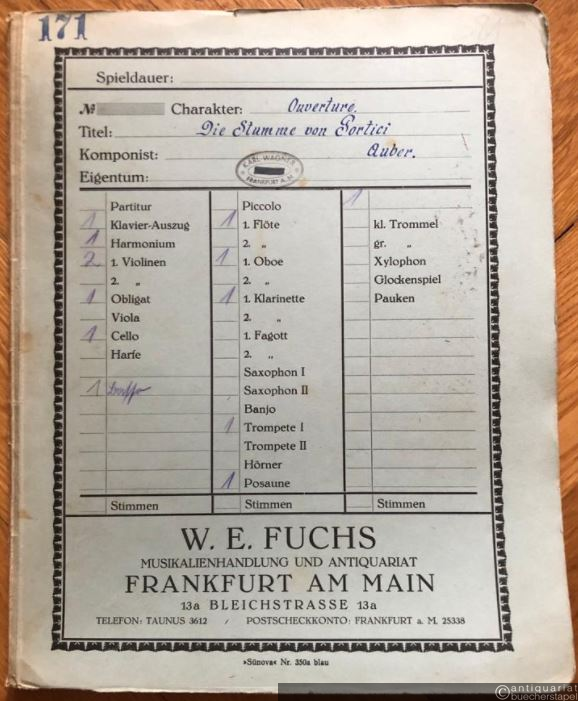 171
Spieldauer:
№ Charakter: Ouverture.
Titel: Die Stumme von Portici
Komponist: Auber.
Eigentum:
KARL WAGNER
FRANKFURT A. M.
Partitur
1 Klavier-Auszug
1 Harmonium
2 1. Violinen
2. „
1 Obligat
Viola
1 Cello
Harfe
1
Stimmen
Piccolo
1 1. Flöte
2. „
1 1. Oboe
2. „
1 1. Klarinette
2. „
1. Fagott
2. „
Saxophon I
Saxophon II
Banjo
1 Trompete I
Trompete II
Hörner
1 Posaune
Stimmen
1
kl. Trommel
gr. „
Xylophon
Glockenspiel
Pauken
Stimmen
W. E. FUCHS
MUSIKALIENHANDLUNG UND ANTIQUARIAT
FRANKFURT AM MAIN
13a BLEICHSTRASSE 13a
TELEFON: TAUNUS 3612 / POSTSCHECKKONTO: FRANKFURT a. M. 25338
»Sünova« Nr. 350a blau
antiquariat
buecherstapel